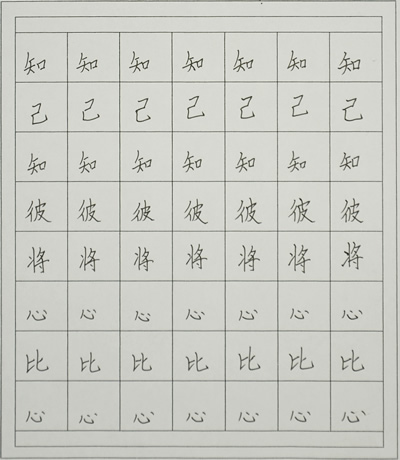 知知知知知知知
己己己己己己己
知知知知知知知
彼彼彼彼彼彼彼
将将将将将将将
心心心心心心心
比比比比比比比
心心心心心心心